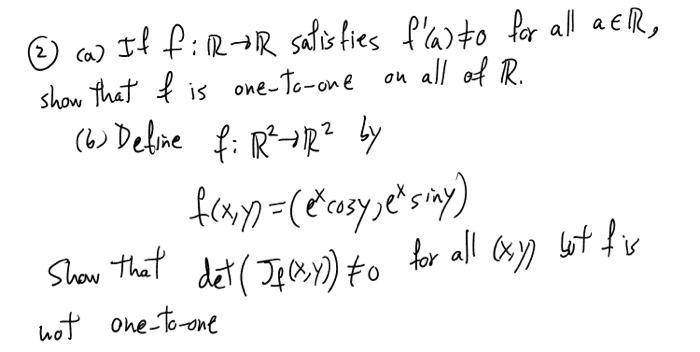 ② (a) If f: ℝ→ℝ satisfies f'(a)≠0 for all a∈ℝ,
show that f is one-to-one on all of ℝ.
(b) Define f: ℝ²→ℝ² by
f(x,y)=(eˣcosy, eˣsiny)
Show that det(Jf(x,y))≠0 for all (x,y) but f is
not one-to-one